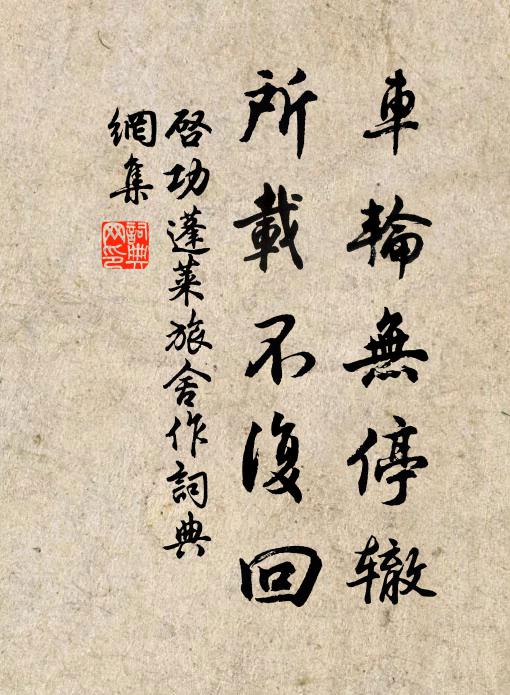 車輪無停辙
所載不復回
啓功蓬萊旅舍作詞典
網集
詞典
网印